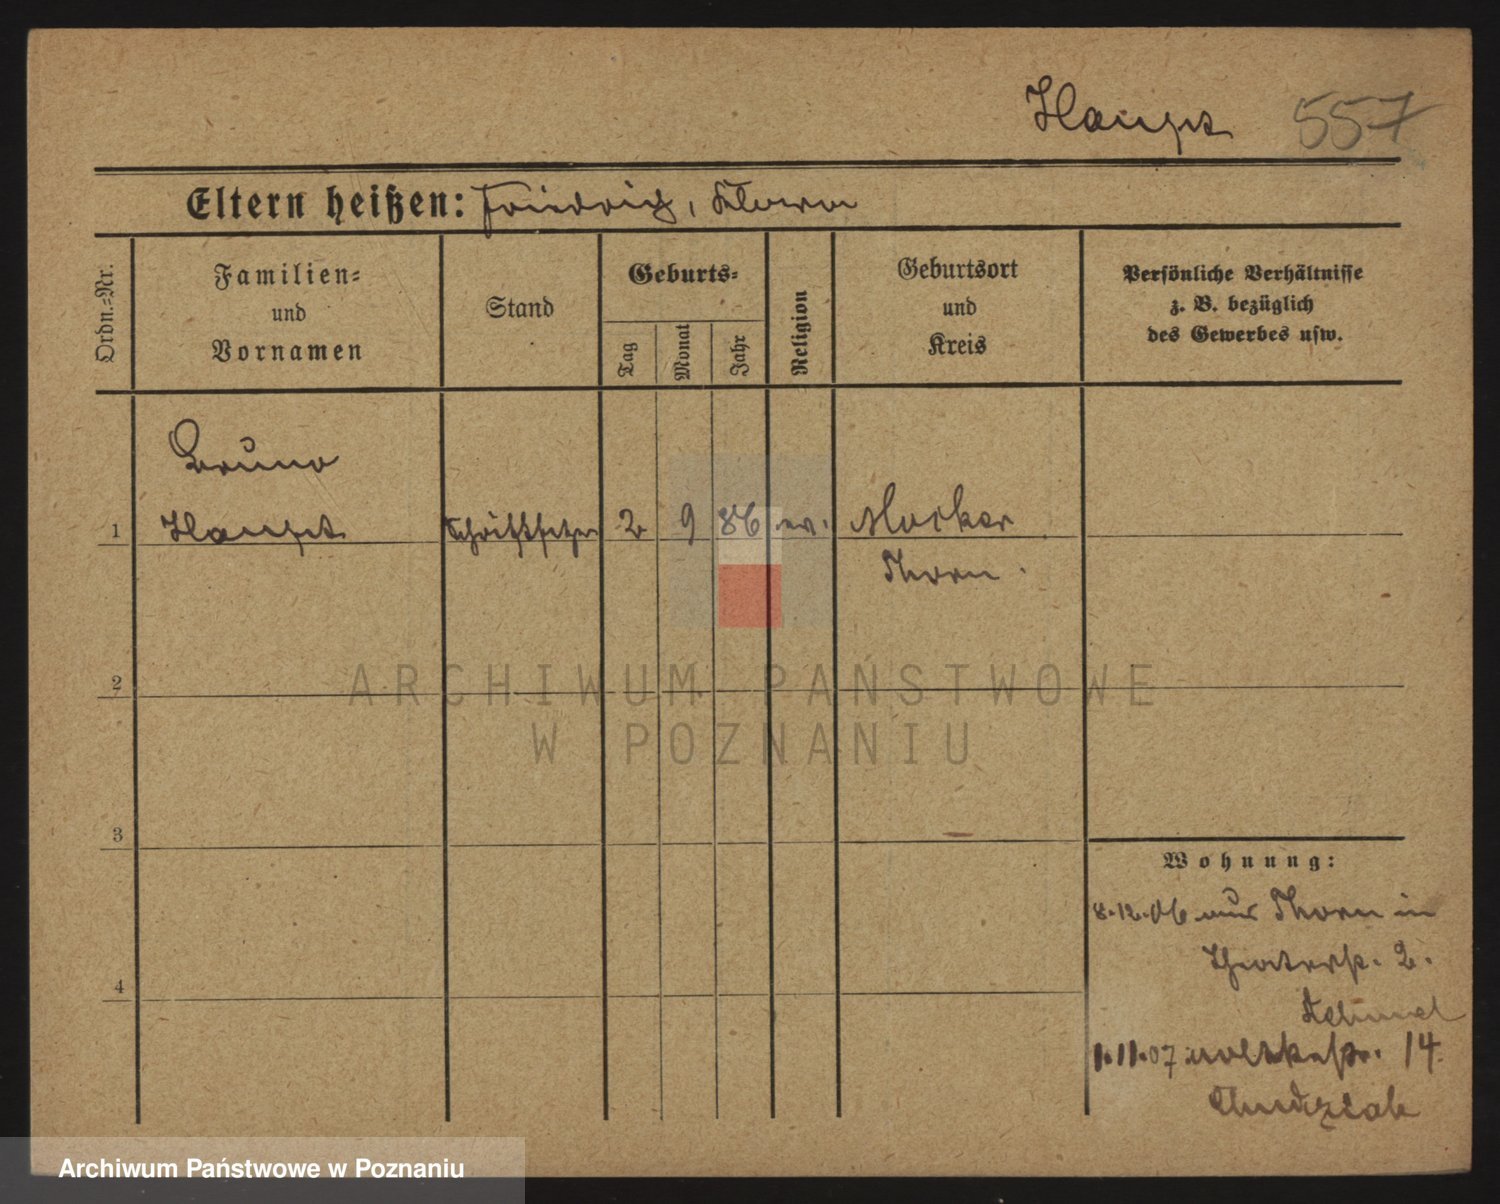 Haupt 557
Eltern heißen: Friedrich, Klara
Ordn.-Nr.
Familien-
und
Vornamen
Stand
Geburts-
Tag
Monat
Jahr
Religion
Geburtsort
und
Kreis
Persönliche Verhältnisse
z. B. bezüglich
des Gewerbes usw.
Bruno
1 Haupt Schriftsetzer 2 9 86 ev. Mocker
Thorn.
2
3
4
Wohnung:
8.12.06 aus Thorn in
Theaterstr. 2.
1.11.07 Moltkestr. 14.
ARCHIWUM PAŃSTWOWE
W POZNANIU
Archiwum Państwowe w Poznaniu